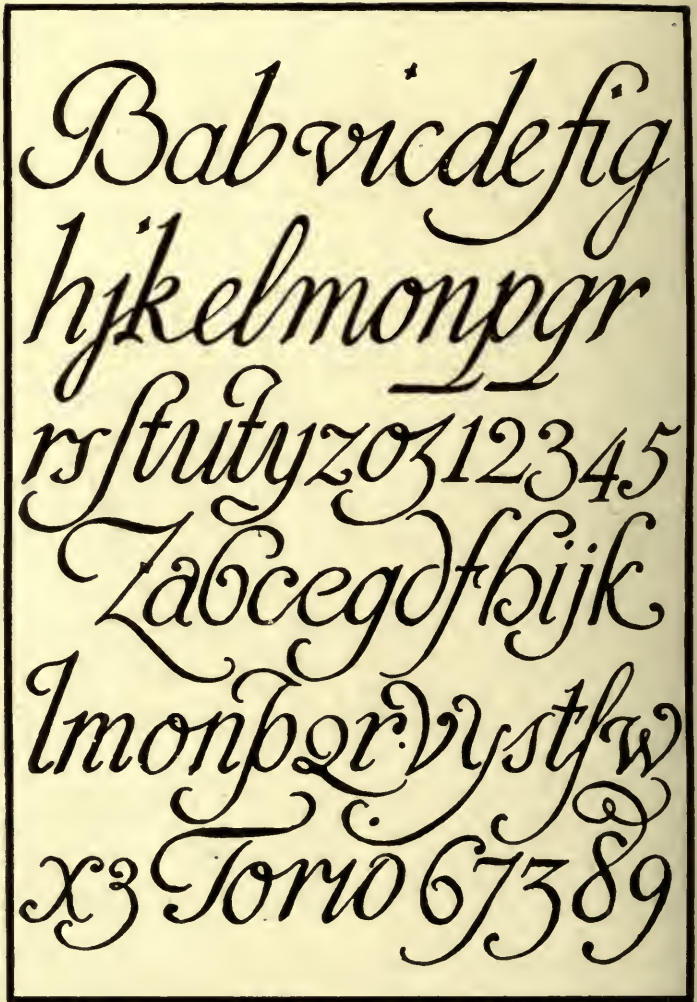 Babvicdefig
hjkelmonpqr
rsſtutyzoʒ12345
Zabcegdfhijk
lmonpqrvystſw
xʒ Torio 67389